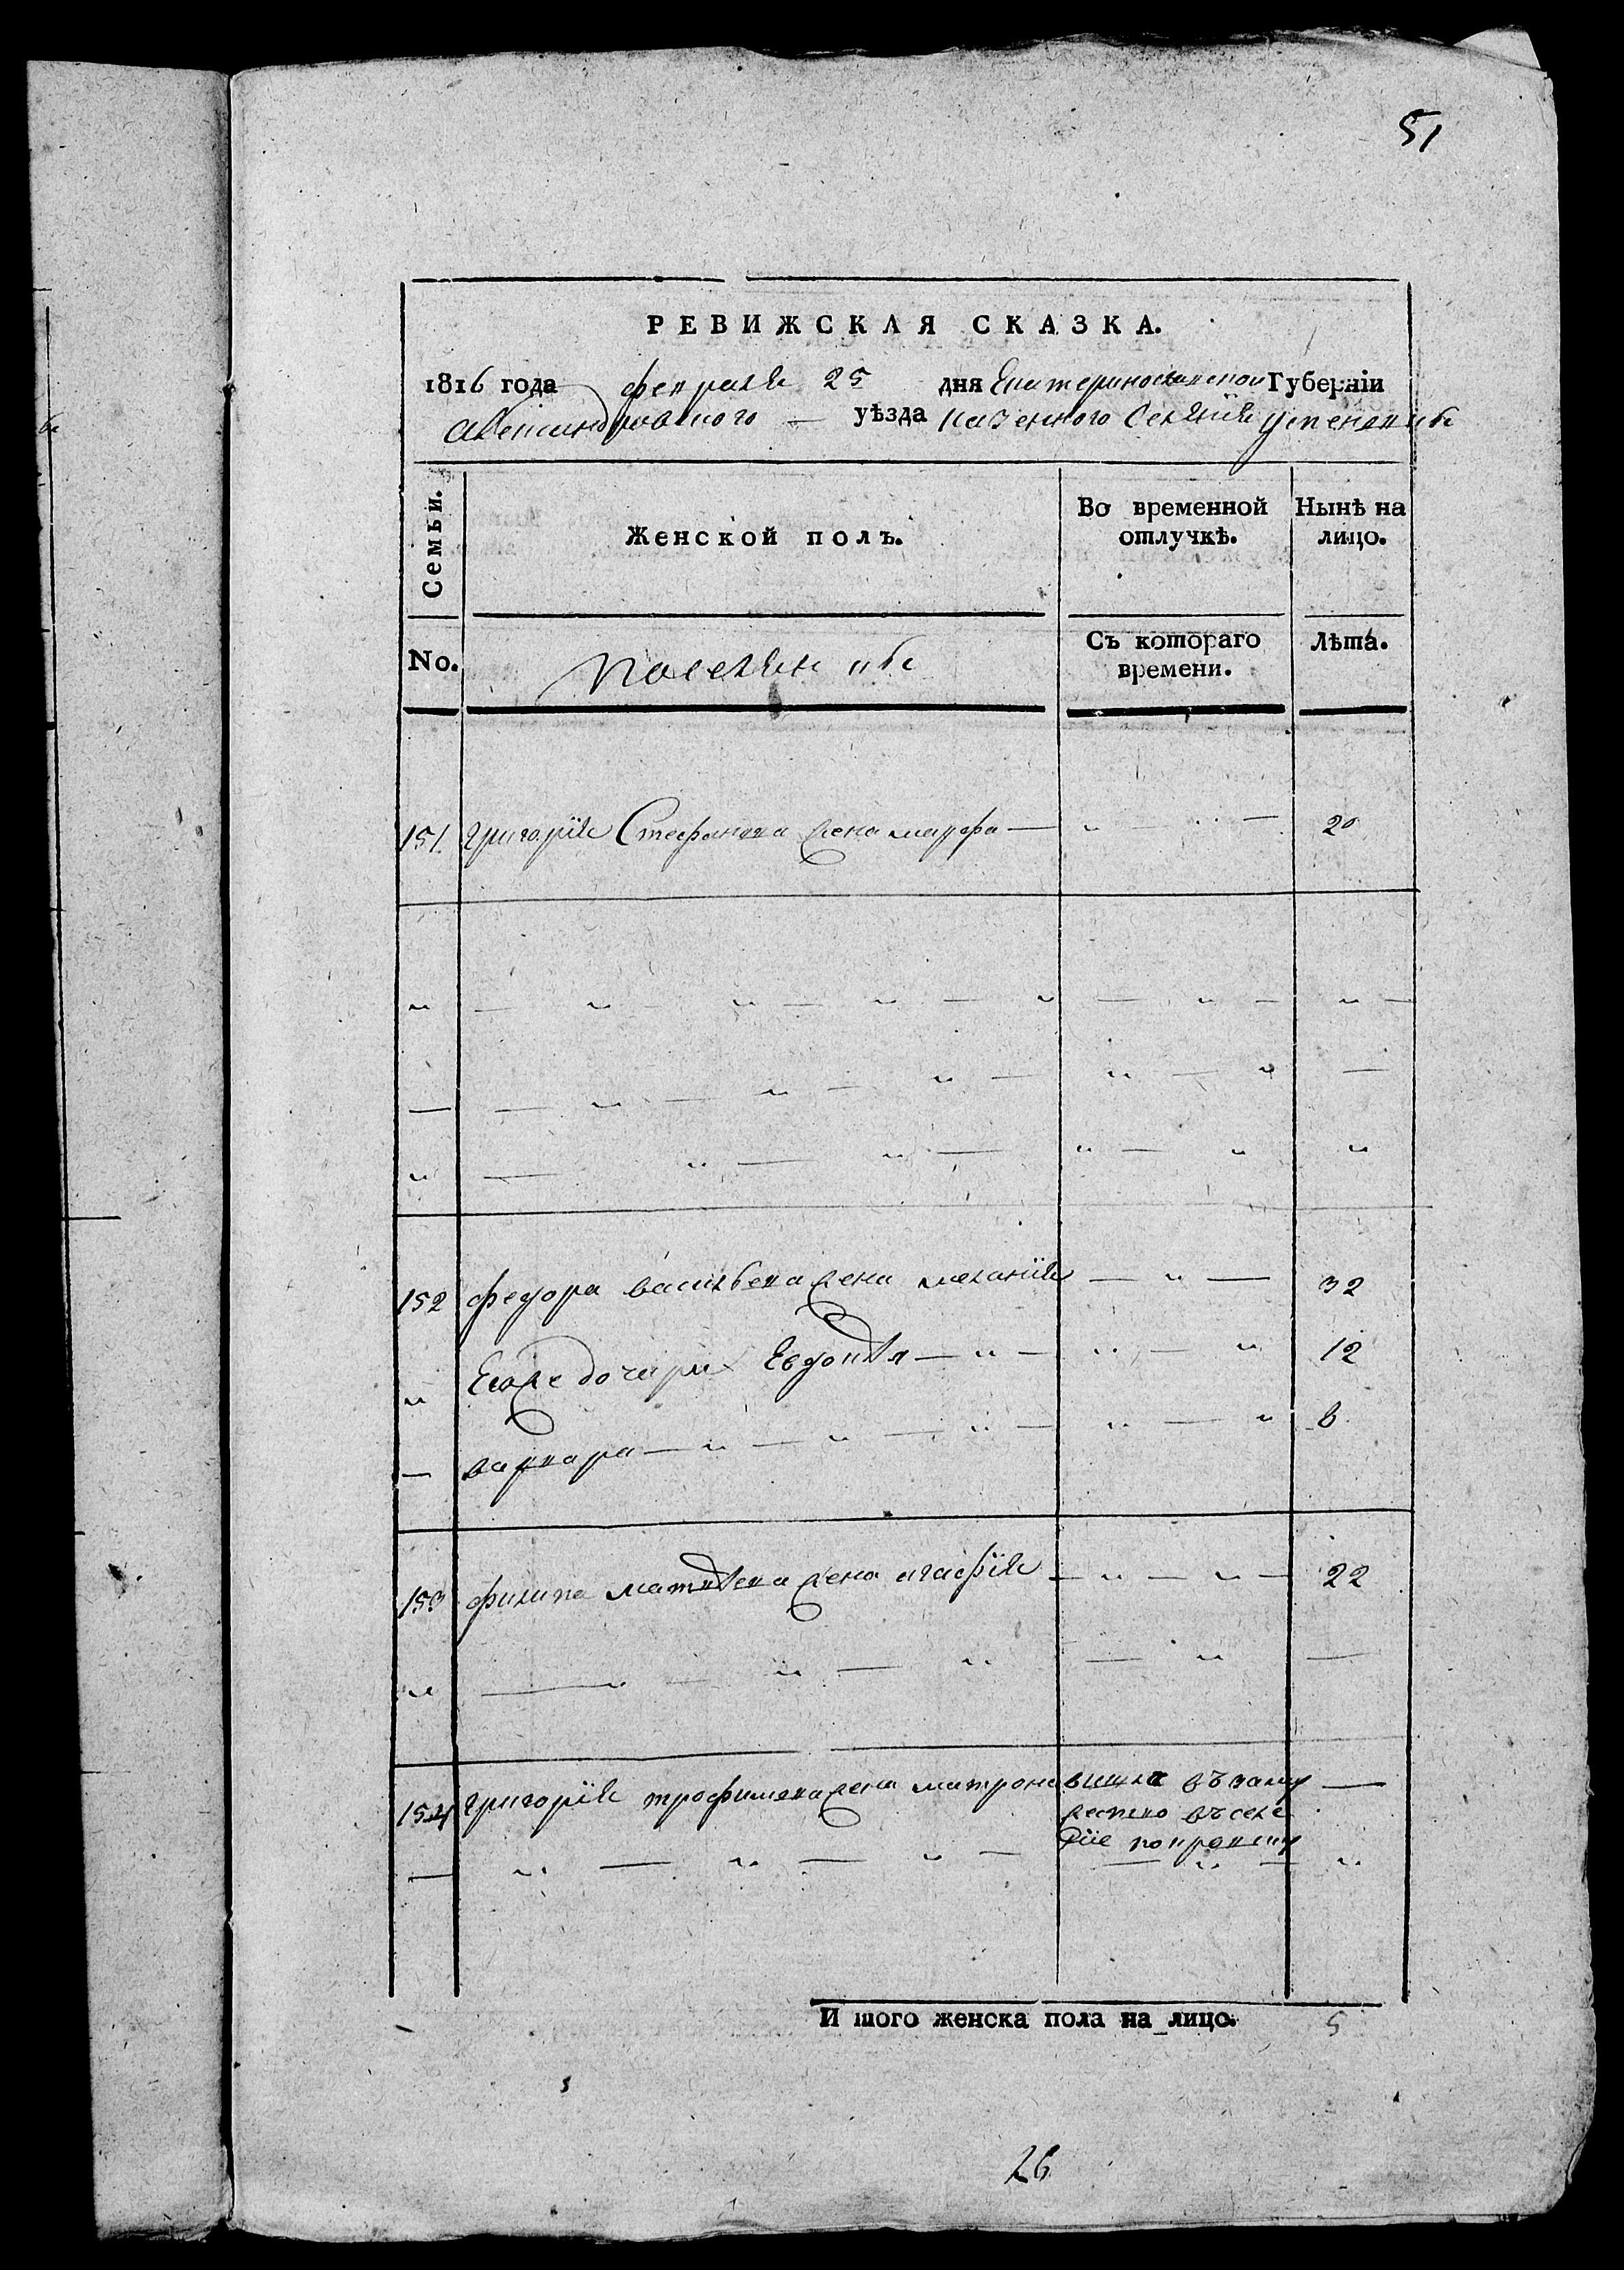 51
РЕВИЖСКАЯ СКАЗКА.
1816 года февраля 25 дня Екатеринославской Губерніи
Александровского уѣзда казенного Селения
Семьи.
Женской полъ.
Во временной отлучкѣ.
Нынѣ на лицо.
No.
Поселян
Съ котораго времени.
Лѣта.
151. Григорія Стефанова жена марфа — 20
152 федора васильева жена меланія — 32
Егоже дочери Евдокѣя — 12
варвара — 8
153 филипа матвѣева жена агафія — 22
154 Григорія трофимова жена матрона вишла въ
Итого женска пола на лицо. 5
26